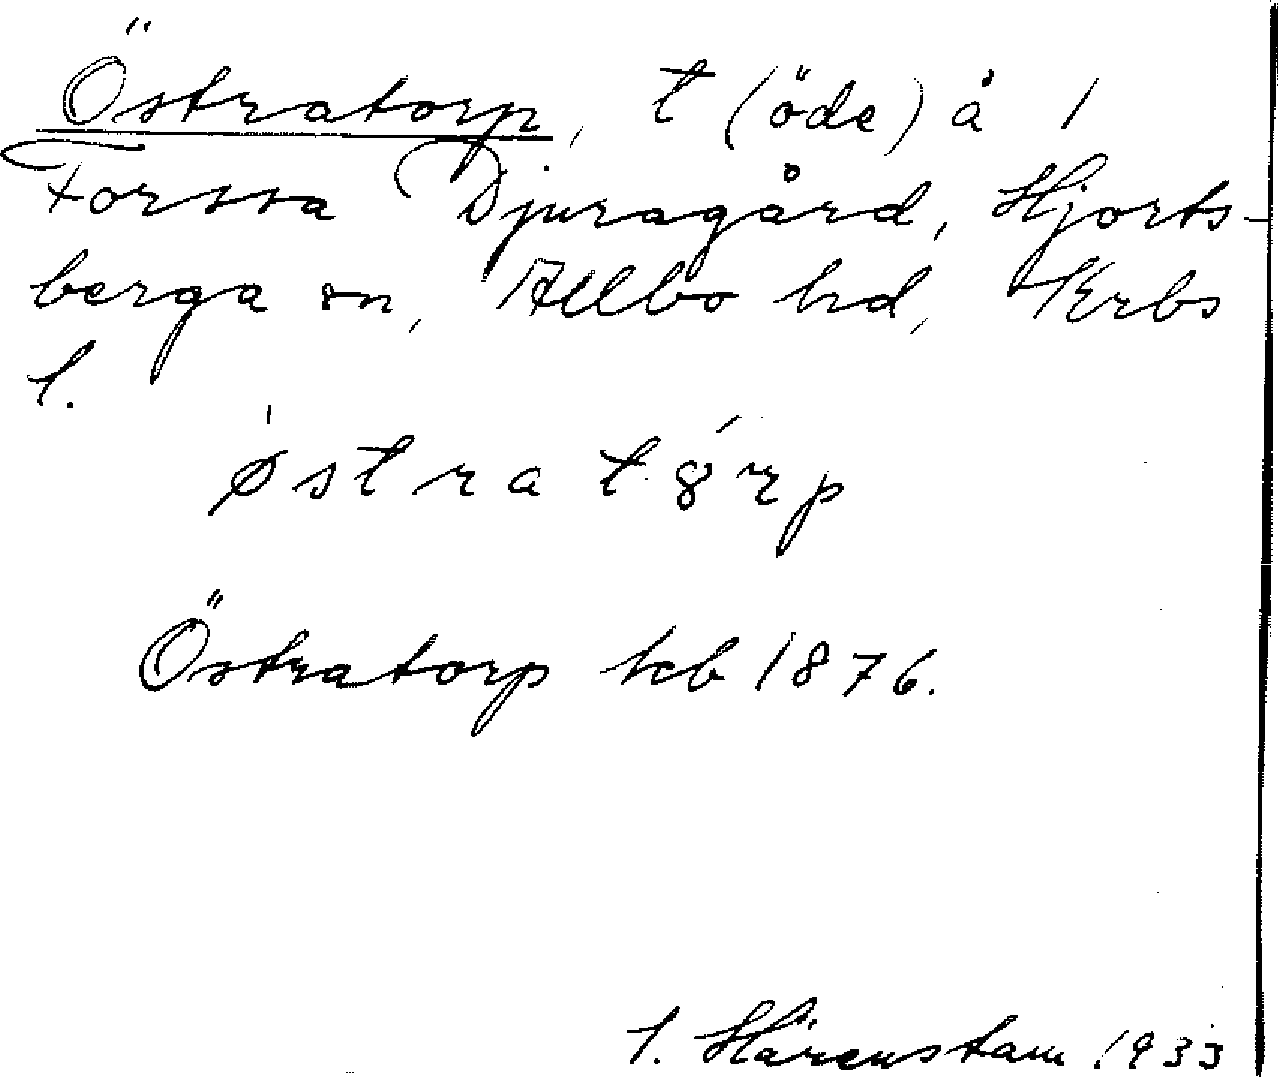 Östratorp, t (öde) å 1
Forssa Djuragård, Hjorts-
berga sn, Allbo hd, Krbs
l.
østrat8́rp
Östratorp hcb 1876.
I. Härenstam 1933